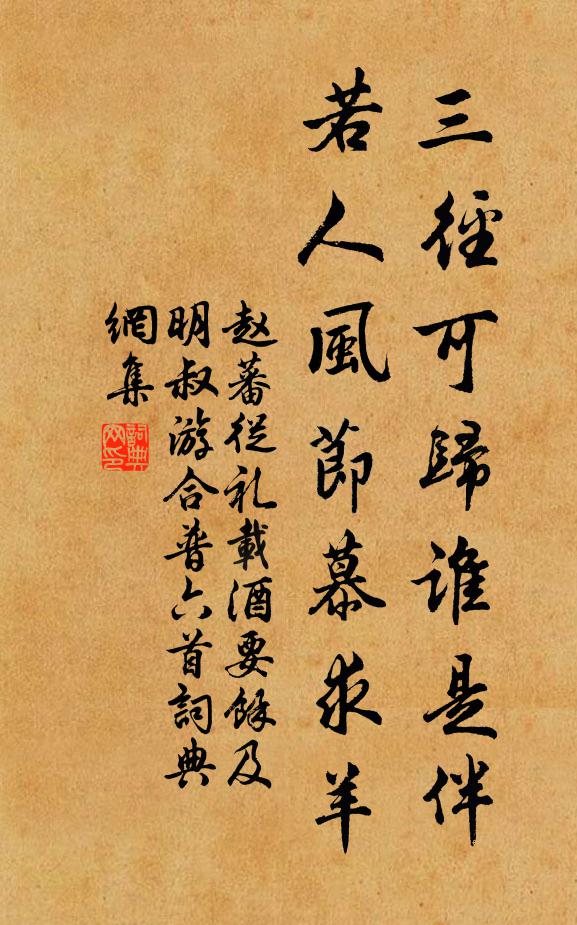 三徑可歸谁是伴
若人風節慕求羊
赵蕃從礼載酒要餘及
明叔游合普六首詞典
網集
詞典
网印